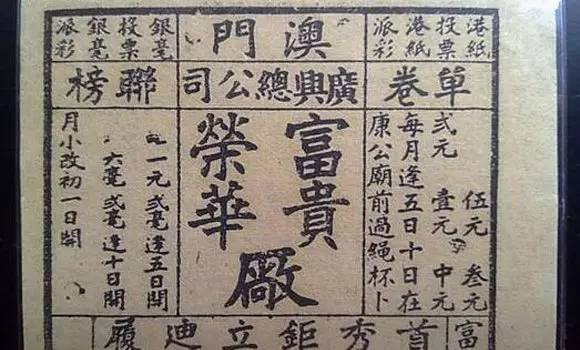 港紙
投票
港紙
派彩
澳門
銀毫
投票
銀毫
派彩
單卷
廣興總公司
聯榜
伍元 叁元
弍元 壹元 中元
每月逢五日十日在
康公廟前過繩杯卜
富貴
榮華
廠
一元弍毫逢五日開
六毫弍毫逢十日開
月小改初一日開
富
首秀鉅立迪履